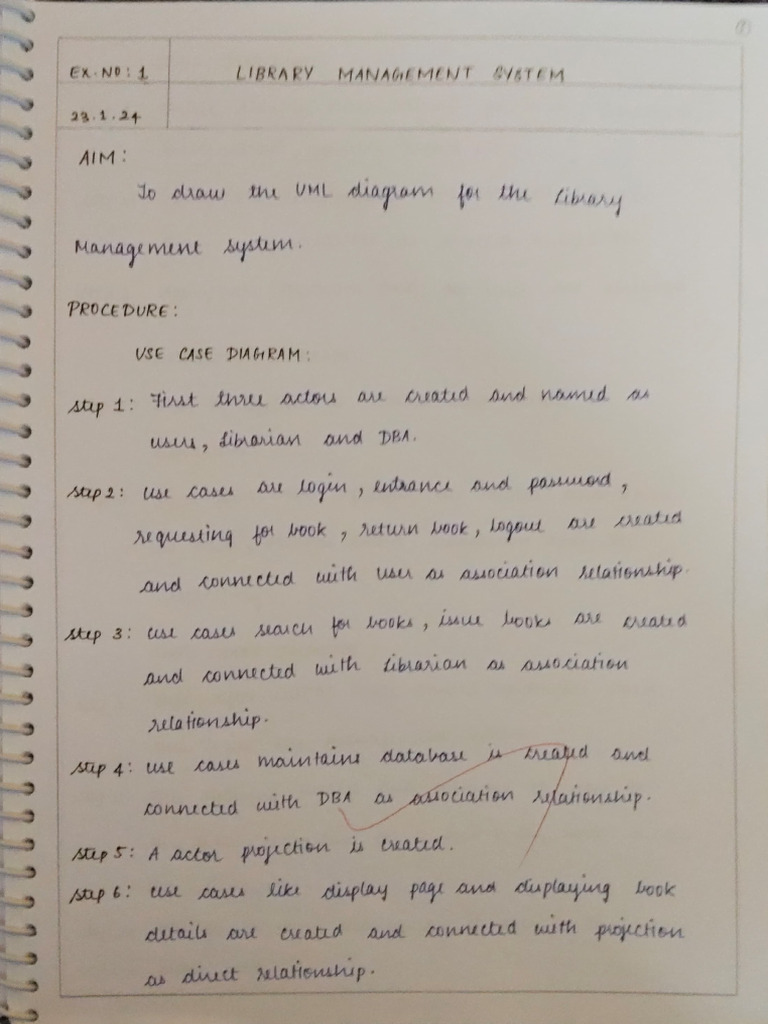 EX.NO: 1
LIBRARY MANAGEMENT SYSTEM
23.1.24
AIM:
To draw the UML diagram for the Library
Management system.
PROCEDURE:
USE CASE DIAGRAM:
Step 1: First three actors are created and named as
users, Librarian and DBA.
Step 2: use cases are login, entrance and password,
requesting for book, return book, logout are created
and connected with user as association relationship.
Step 3: use cases search for books, issue books are created
and connected with Librarian as association
relationship.
Step 4: use cases maintains database is created and
connected with DBA as association relationship.
Step 5: A actor projection is created.
Step 6: use cases like display page and displaying book
details are created and connected with projection
as direct relationship.